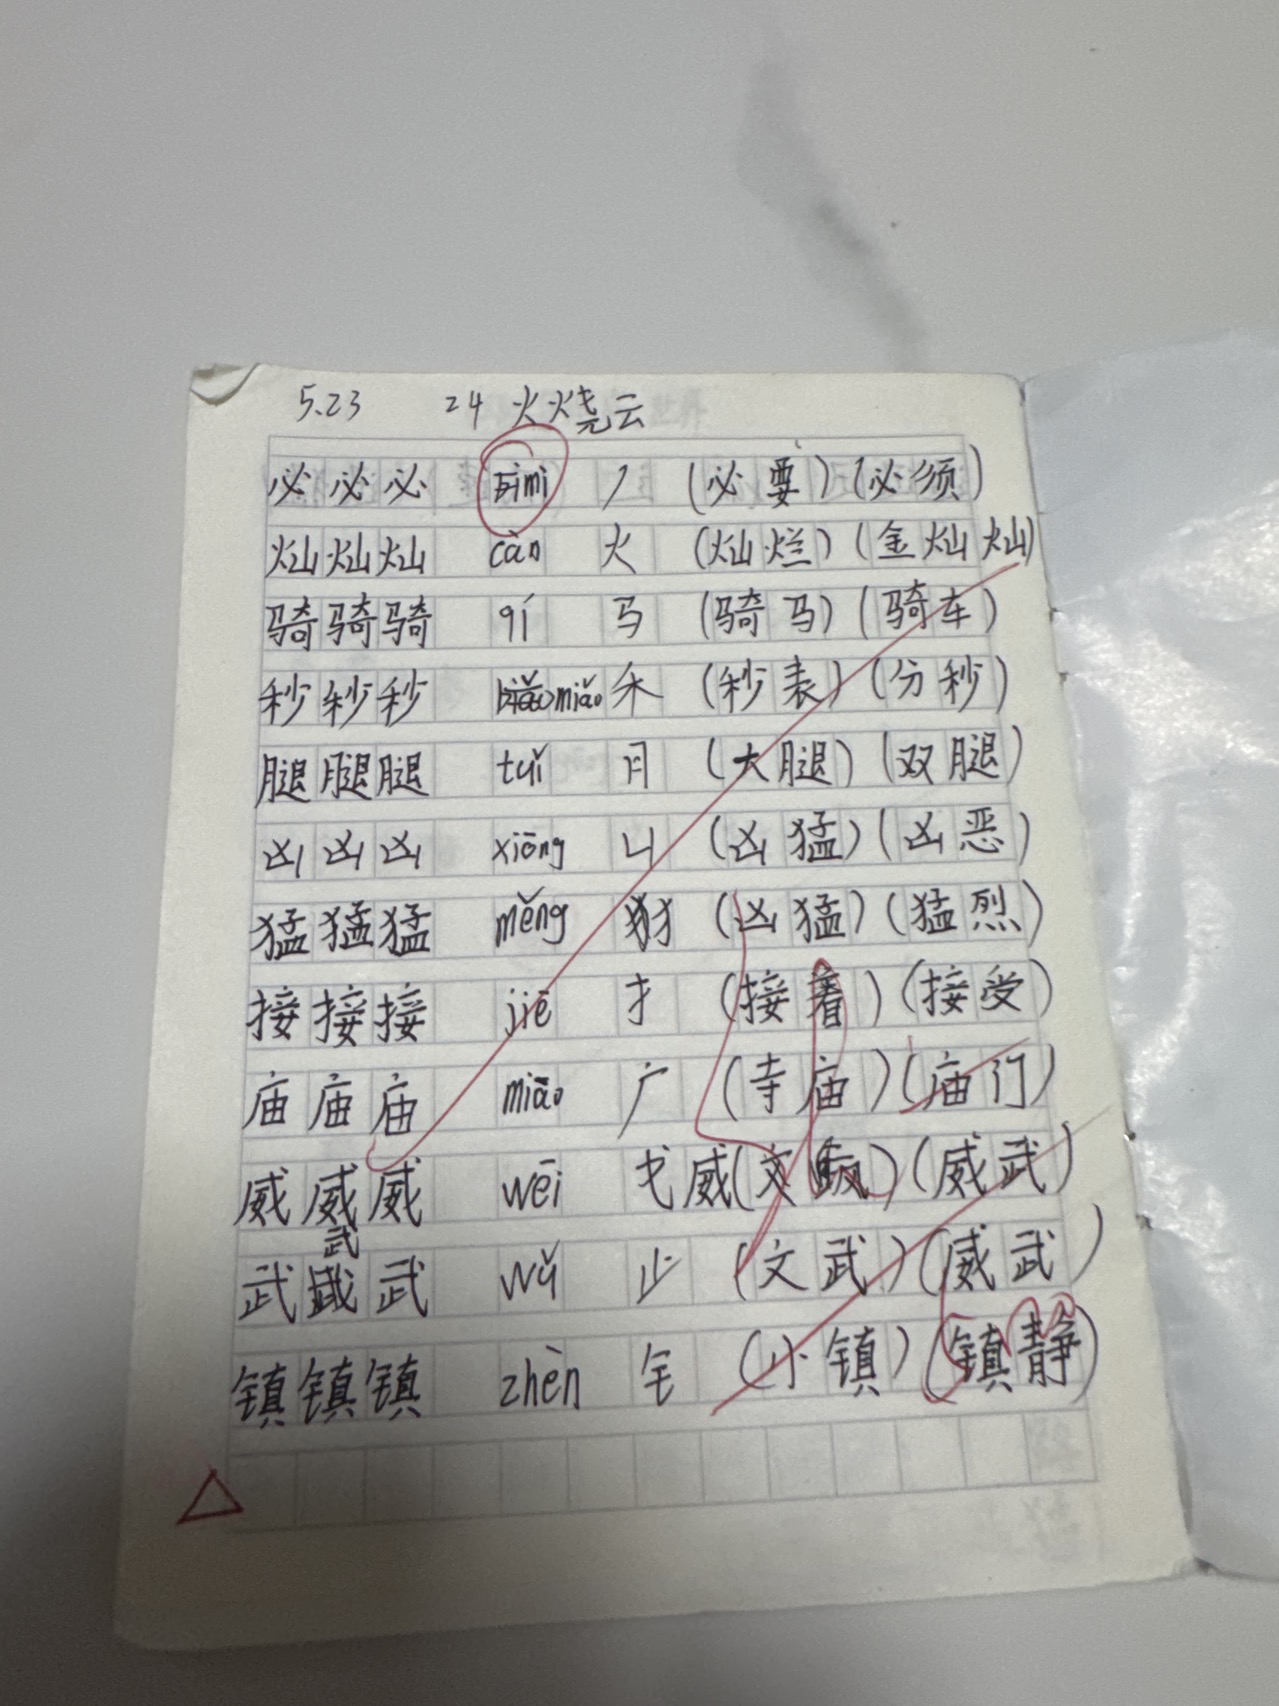 5.23 24 火烧云
必必必 丿 (必要)(必须)
灿灿灿 càn 火 (灿烂)(金灿灿)
骑骑骑 qí 马 (骑马)(骑车)
秒秒秒 miǎo 禾 (秒表)(分秒)
腿腿腿 tuǐ 月 (大腿)(双腿)
凶凶凶 xiōng 凵 (凶猛)(凶恶)
猛猛猛 měng 犭 (凶猛)(猛烈)
接接接 jiē 扌 (接着)(接受)
庙庙庙 miāo 广 (寺庙)(庙门)
威威威 wēi 弋 威(文)(威武)
武
武武 wǔ 止 (文武)(威武)
镇镇镇 zhèn 钅 (小镇)(镇静)